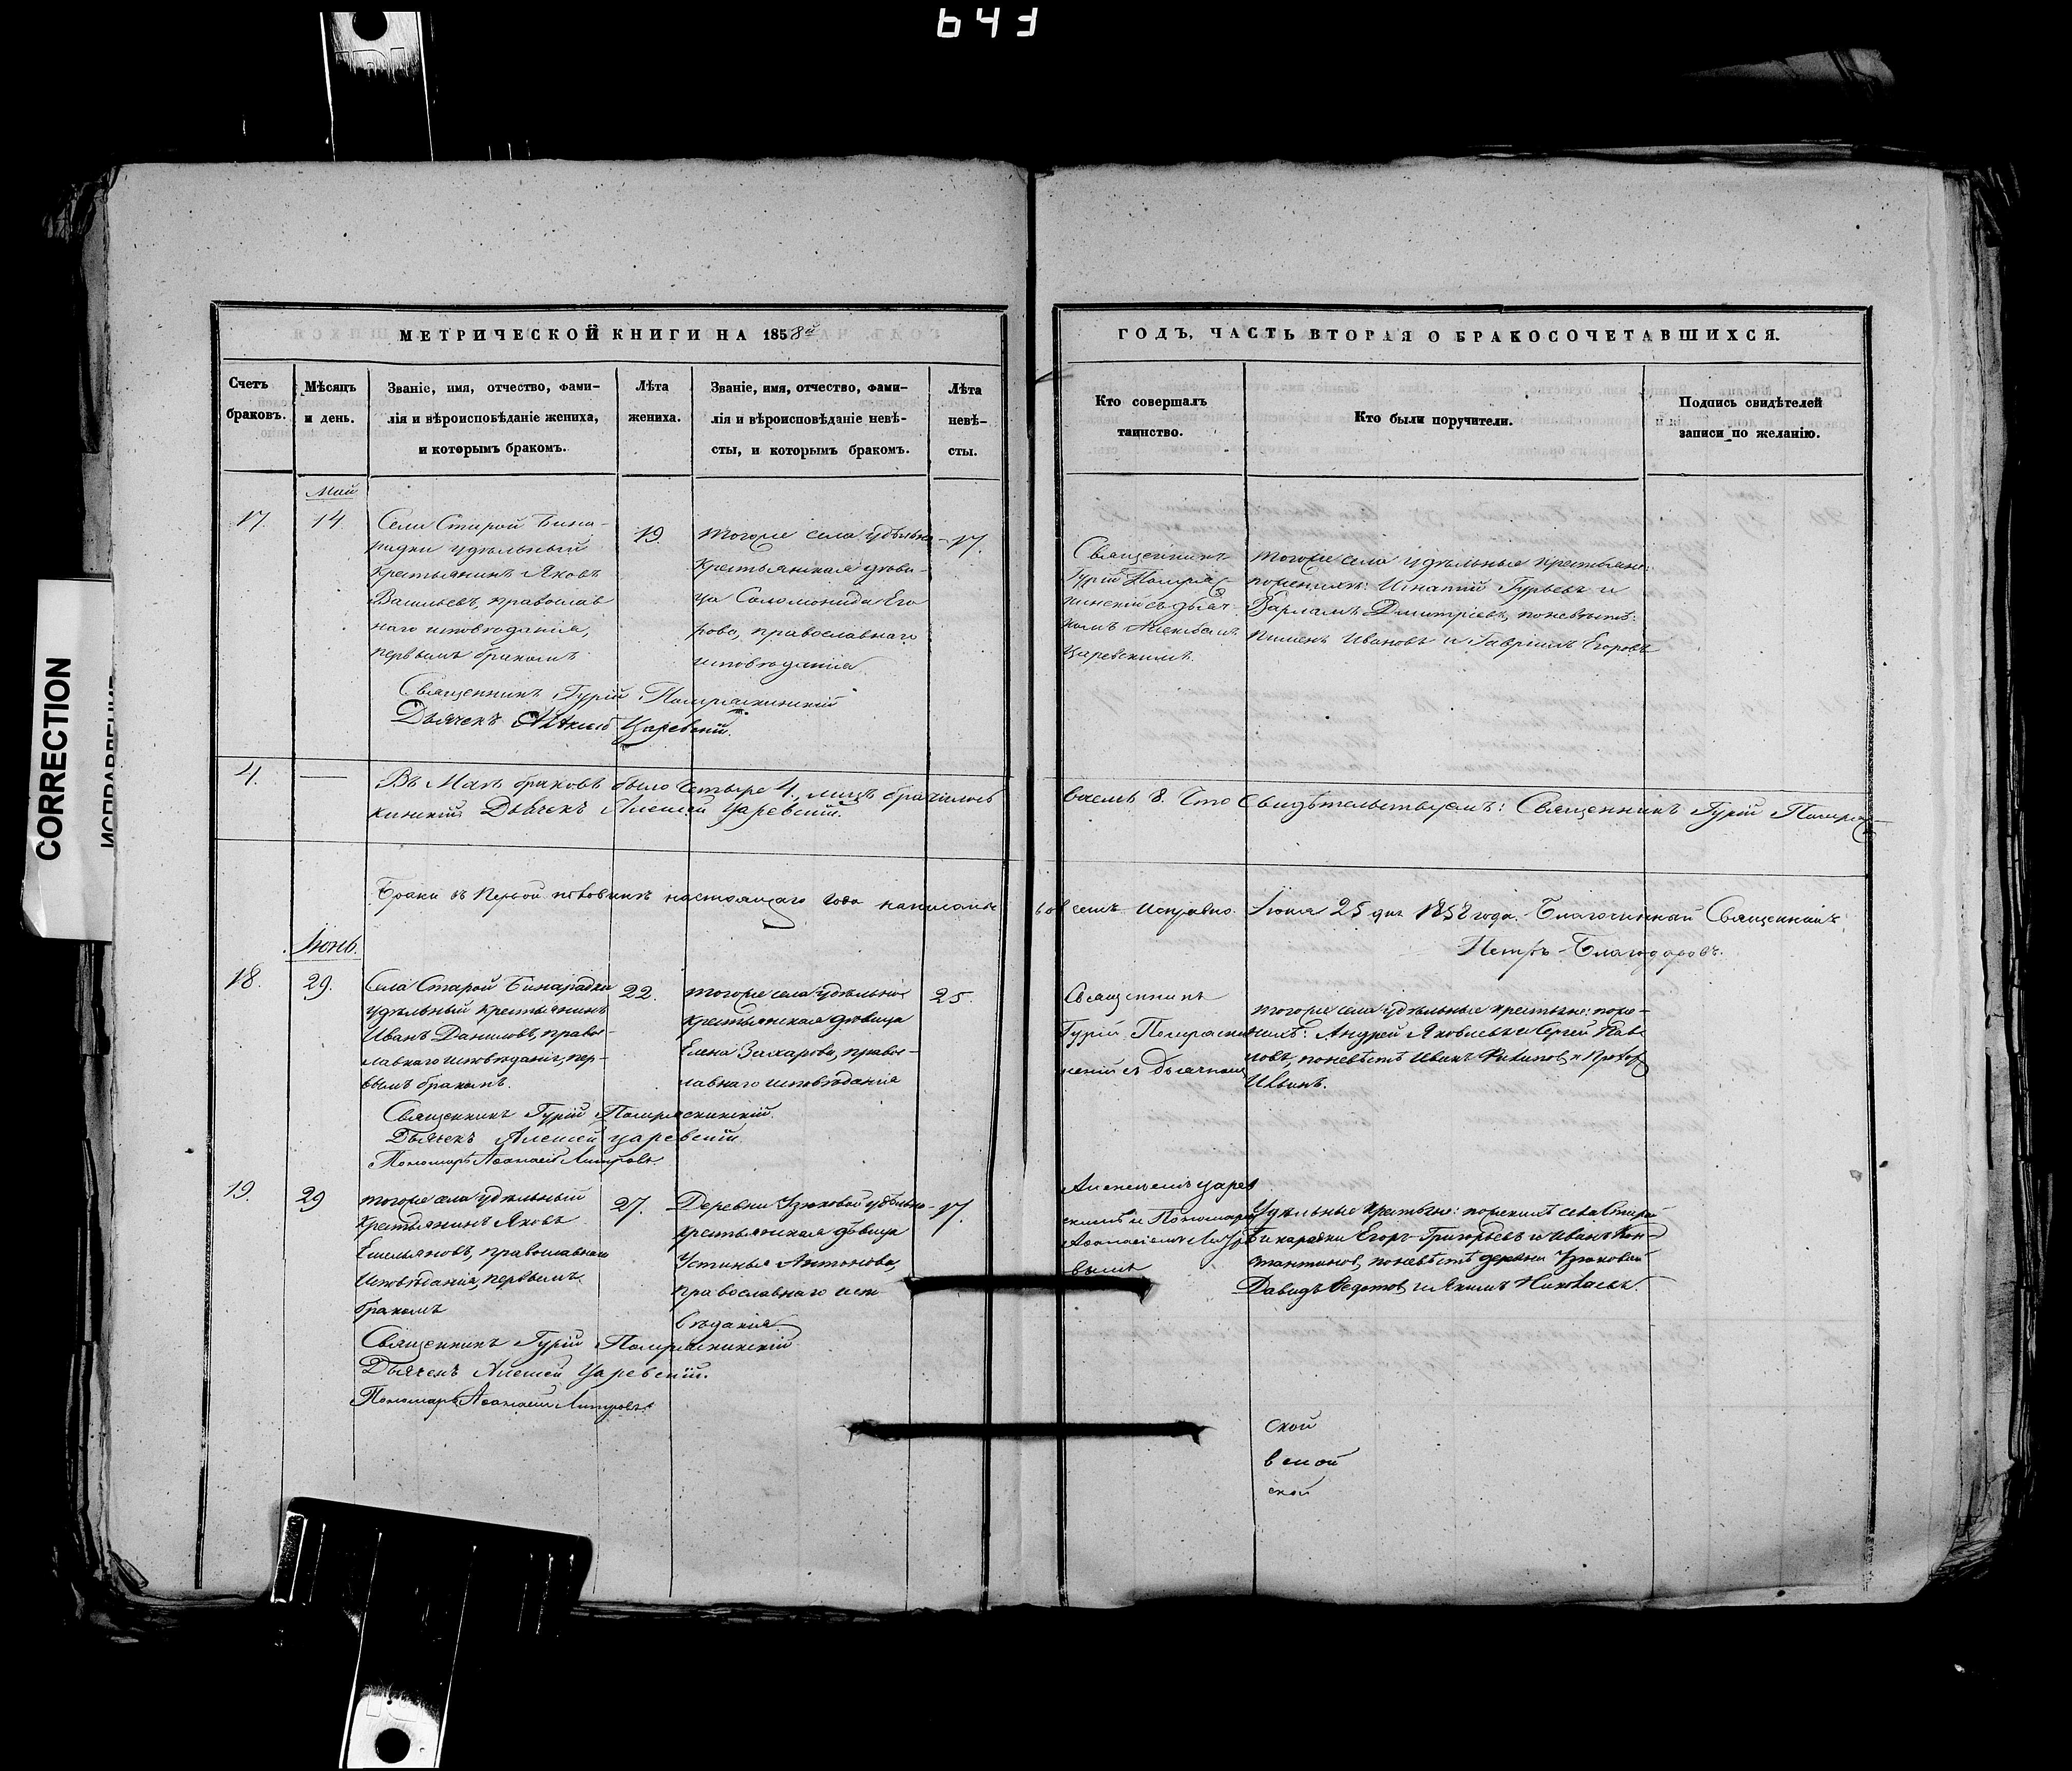 643
CORRECTION
МЕТРИЧЕСКОЙ КНИГИ НА 1858й
ГОДЪ, ЧАСТЬ ВТОРАЯ О БРАКОСОЧЕТАВШИХСЯ.
Счетъ
браковъ.
Мѣсяцъ
и день.
Званіе, имя, отчество, фами-
лія и вѣроисповѣданіе жениха,
и которымъ бракомъ.
Лѣта
жениха.
Званіе, имя, отчество, фами-
лія и вѣроисповѣданіе невѣ-
сты, и которымъ бракомъ.
Лѣта
невѣ-
сты.
Кто совершалъ
таинство.
Кто были поручители.
Подпись свидѣтелей
записи по желанію.
Май
17.
14
Села Старой Бина-
радки удѣльный
крестьянинъ Яковъ
Васильевъ, православ
наго исповѣданія,
первымъ бракомъ
19.
тогоже села удѣльна-
крестьянская дѣви-
ца Соломонида Его
рова, православнаго
исповѣданія
17.
Священникъ
Гурій
съ дьяч-
комъ Алексѣемъ
Царевскимъ.
тогоже села удѣльные крестьяне:
поженихѣ: Игнатій Гурьевъ и
Варламъ Димитріевъ, поневѣстѣ:
Пименъ Ивановъ и Гавріилъ Егоровъ
Священникъ Гурій
Дьячекъ Алексѣй Царевскій.
4.
Въ Маѣ браковъ было четыре 4. лицъ брачилось
восемь 8. Что свидѣтельствуемъ: Священникъ Гурій
кинскій Дьячекъ Алексѣй Царевскій.
Браки въ первой половинѣ настоящаго года написаны
во всемъ исправно. Іюня 25 дня 1858 года. Благочинный Священникъ
Петръ
Іюнь.
18.
29.
Села Старой Бинарадки
удѣльный крестьянинъ
Иванъ Даниловъ, правос-
лавнаго исповѣданія, пер-
вымъ бракомъ.
22.
тогоже села удѣльная
крестьянская дѣвица
Елена Захарова, правос-
лавнаго исповѣданія
25.
Священникъ
Гурій
скій съ дьячкомъ
тогоже села удѣльные крестьяне: поже-
нихѣ: Андрей Яковлевъ и Сергей Пав-
ловъ, поневѣстѣ Иванъ Филиповъ и Прохоръ
Ильинъ.
Священникъ Гурій
Дьячекъ Алексѣй Царевскій.
Пономарь Аѳанасій
19.
29
тогоже села удѣльный
крестьянинъ Яковъ
Емельяновъ, православнаго
исповѣданія, первымъ
бракомъ
27.
Деревни Узюковой удѣльна-
крестьянская дѣвица
Устинья Антонова,
православнаго испо
вѣданія
17.
Алексѣемъ Царев
скимъ и Пономаремъ
Аѳанасіемъ
вымъ
Удѣльные крестьяне: поженихѣ села Старой
Бинарадки Егоръ Григорьевъ и Иванъ Кон-
стантиновъ, поневѣстѣ деревни Узюковой
Давидъ Ѳедотовъ и Якимъ Николаевъ.
Священникъ Гурій
Дьячекъ Алексѣй Царевскій.
Пономарь Аѳанасій
ской
ской